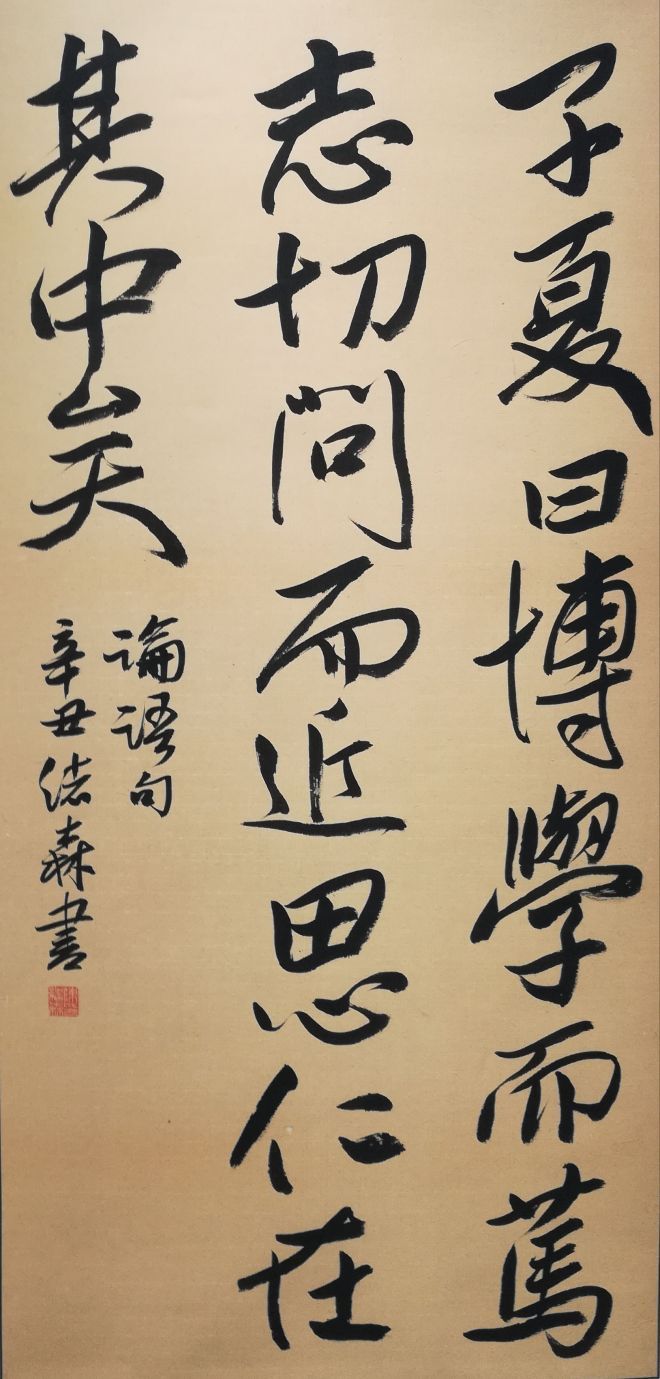 子夏曰博學而篤
志切問而近思仁在
其中矣
論語句
辛丑 森書